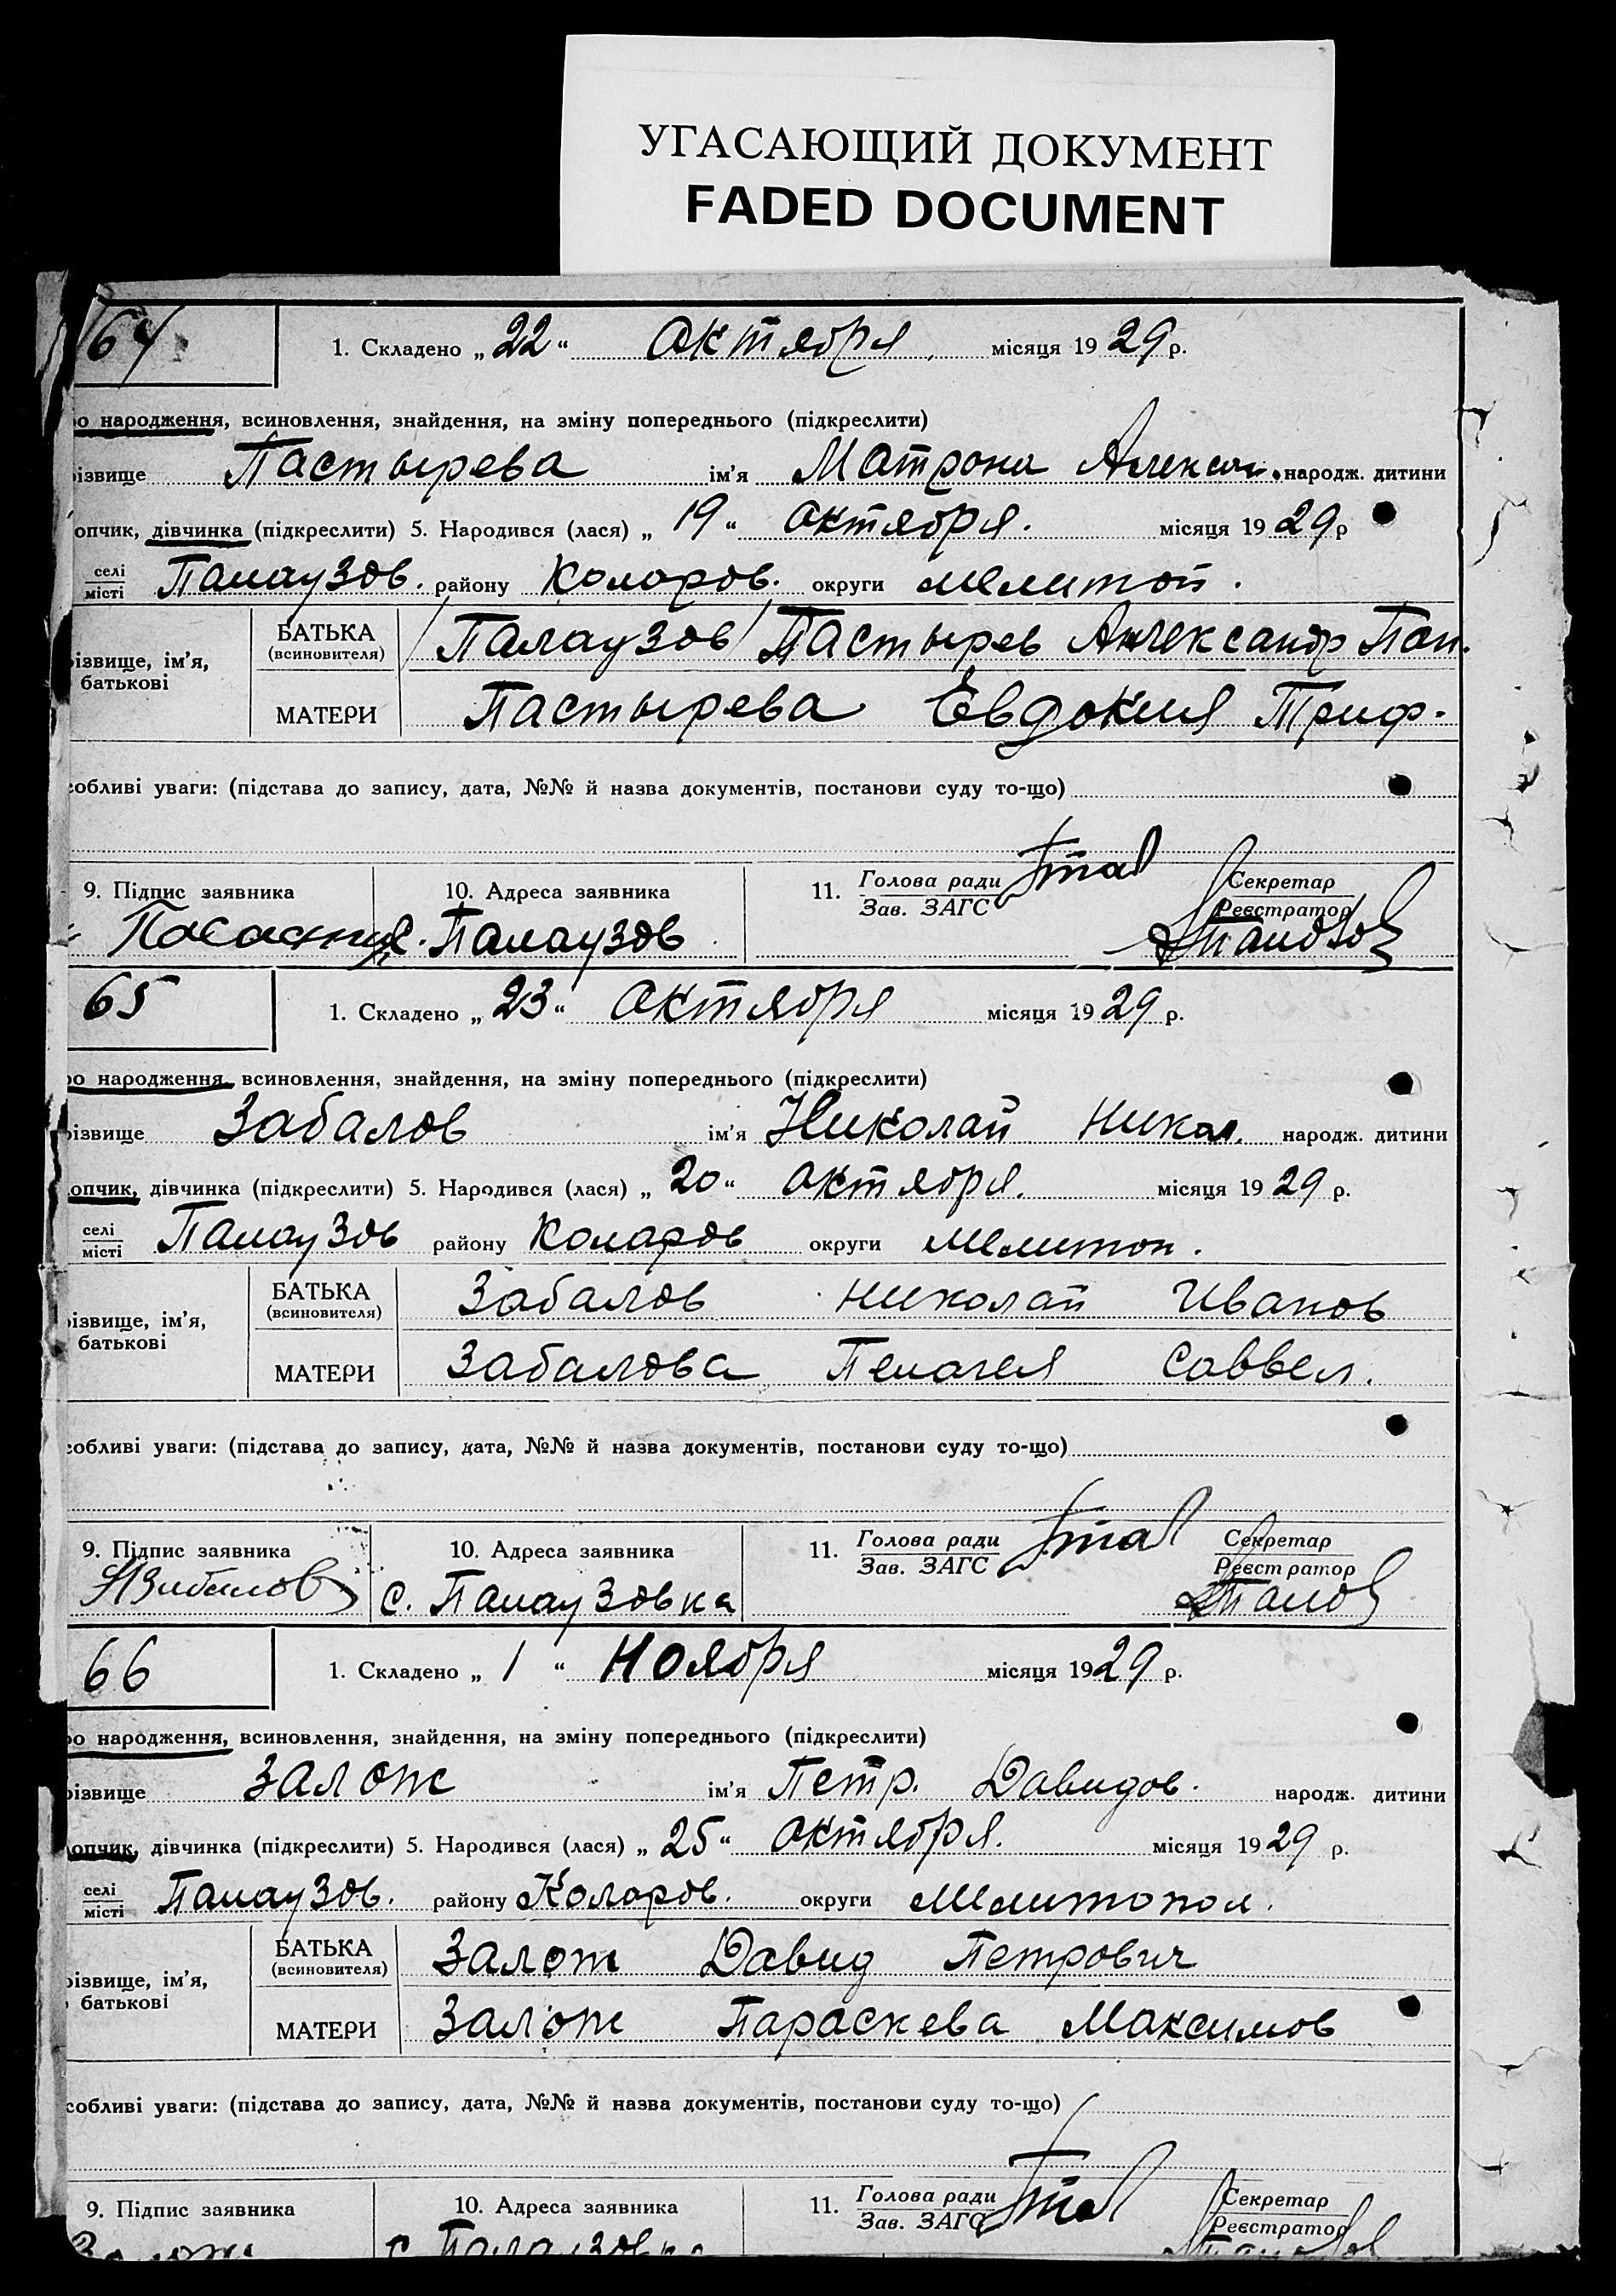 УГАСАЮЩИЙ ДОКУМЕНТ
FADED DOCUMENT
64
1. Складено „ 22 “ Октября місяця 1929 р.
ро народження, всиновлення, знайдення, на зміну попереднього (підкреслити)
різвище Пастырева ім'я Матрона Алексан. народж. дитини
опчик, дівчинка (підкреслити) 5. Народився (лася) „ 19 “ Октября. місяця 1929 р
селі
місті Палаузов. району Коларов. округи Мелитоп.
різвище, ім'я, батькові
БАТЬКА (всиновителя) /Палаузов/ Пастырев Александр Пан.
МАТЕРИ Пастырева Евдокия Триф.
собливі уваги: (підстава до запису, дата, №№ й назва документів, постанови суду то-що)
9. Підпис заявника 10. Адреса заявника 11. Голова ради
Зав. ЗАГС Секретар
Реєстратор
Палаузов
65
1. Складено „ 23 “ Октября місяця 1929 р.
ро народження, всиновлення, знайдення, на зміну попереднього (підкреслити)
різвище Забалов ім'я Николай Никол. народж. дитини
опчик, дівчинка (підкреслити) 5. Народився (лася) „ 20 “ Октября. місяця 1929 р.
селі
місті Палаузов району Коларов округи Мелитоп.
різвище, ім'я, батькові
БАТЬКА (всиновителя) Забалов Николай Иванов
МАТЕРИ Забалова Пелагея Саввел.
собливі уваги: (підстава до запису, дата, №№ й назва документів, постанови суду то-що)
9. Підпис заявника 10. Адреса заявника 11. Голова ради
Зав. ЗАГС Секретар
Реєстратор
Забалов с. Палаузовка
66
1. Складено „ 1 “ Ноября місяця 1929 р.
ро народження, всиновлення, знайдення, на зміну попереднього (підкреслити)
різвище Залож ім'я Петр. Давидов. народж. дитини
опчик, дівчинка (підкреслити) 5. Народився (лася) „ 25 “ Октября. місяця 1929 р.
селі
місті Палаузов. району Коларов. округи Мелитопол.
різвище, ім'я, батькові
БАТЬКА (всиновителя) Залож Давид Петрович
МАТЕРИ Залож Параскева Максимов
собливі уваги: (підстава до запису, дата, №№ й назва документів, постанови суду то-що)
9. Підпис заявника 10. Адреса заявника 11. Голова ради
Зав. ЗАГС Секретар
Реєстратор
Залож с. Палаузовка